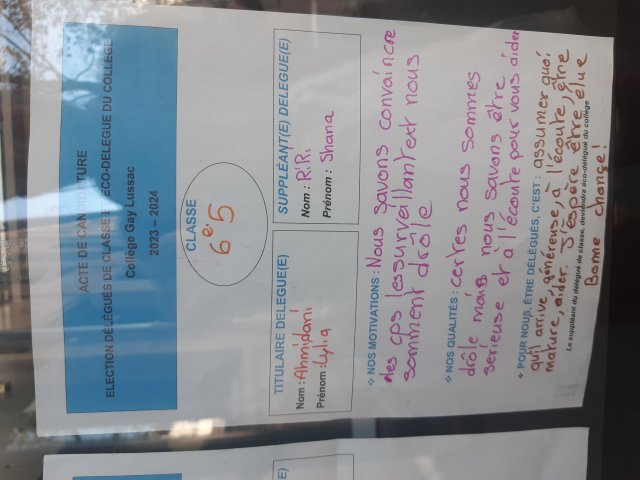 ACTE DE CANDIDATURE
ELECTION DÉLÉGUÉS DE CLASSE ET ECO-DELEGUE DU COLLÈGE
Collège Gay Lussac
2023 – 2024
CLASSE
6e 5
TITULAIRE DELEGUE(E)
Nom : Ahmidani
Prénom : Lylia
SUPPLÉANT(E) DELEGUE(E)
Nom : RiRi
Prénom : Shana
❖ NOS MOTIVATIONS : Nous savons convaincre
les cps les surveillant ext nous
somment drôle
❖ NOS QUALITÉS : certes nous sommes
drôle mais nous savons être
serieuse et à l'écoute pour vous aider
❖ POUR NOUS, ÊTRE DÉLÉGUÉS, C'EST : assumer quoi
qu'il arrive, généreuse, à l'écoute, être
mature, aider. J'espère être élue
Le suppléant du délégué de classe, deviendra éco-délégué du collège
Bonne chance!
E)
E)